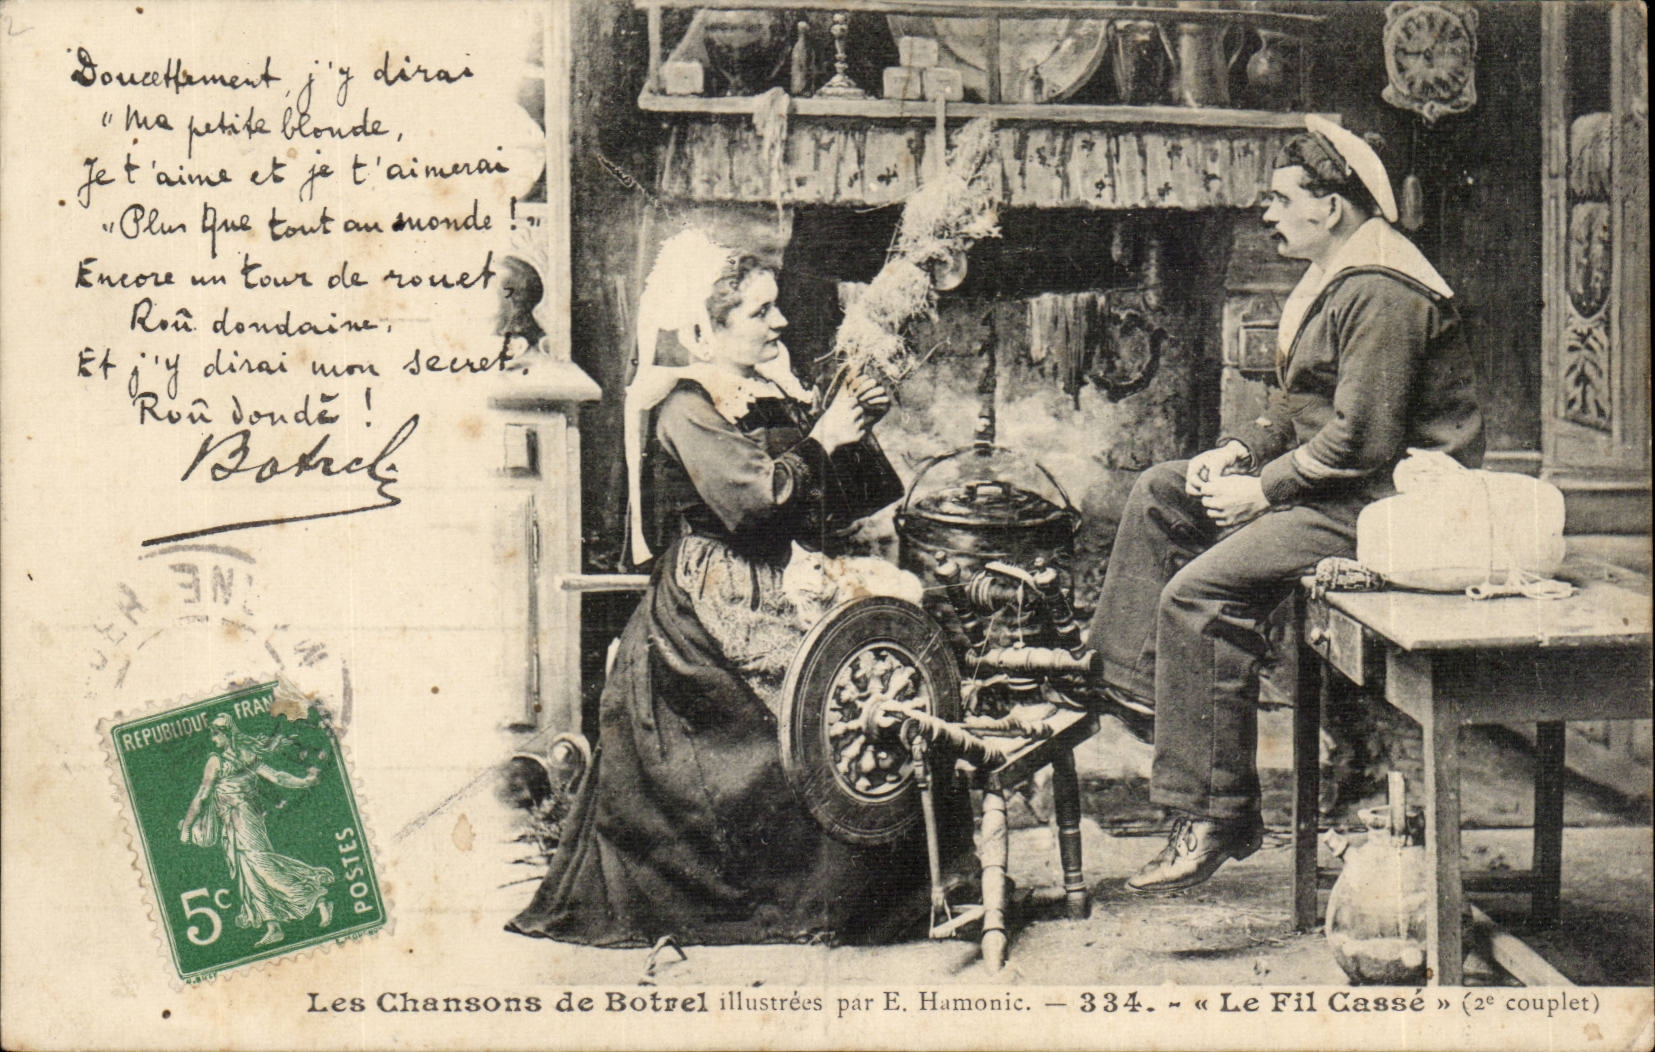 Doucettement, j'y dirai
"Ma petite blonde,
Je t'aime et je t'aimerai
"Plus que tout au monde!"
Encore un tour de rouet,
Roû dondaine,
Et j'y dirai mon secret,
Roû dondé!
Botrel
REPUBLIQUE FRAN
5c
POSTES
Les Chansons de Botrel illustrées par E. Hamonic. — 334. - « Le Fil Cassé » (2e couplet)